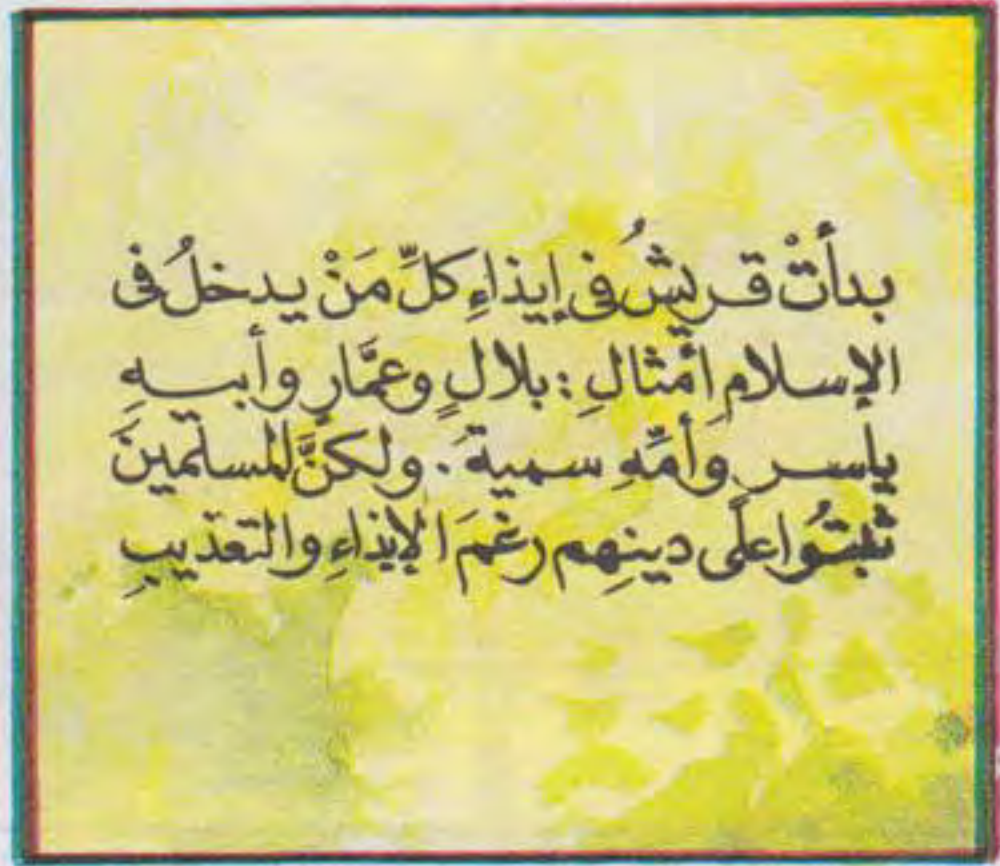 بدأتْ قريشُ فى إيذاءِ كلِّ مَنْ يدخلُ فى
الإسلامِ أمثالِ : بلالٍ وعمَّارٍ وأبيهِ
ياسر وأمِّهِ سمية . ولكنَّ المسلمينَ
ثبتُوا علَى دينِهم رغمَ الإيذاءِ والتعذيبِ